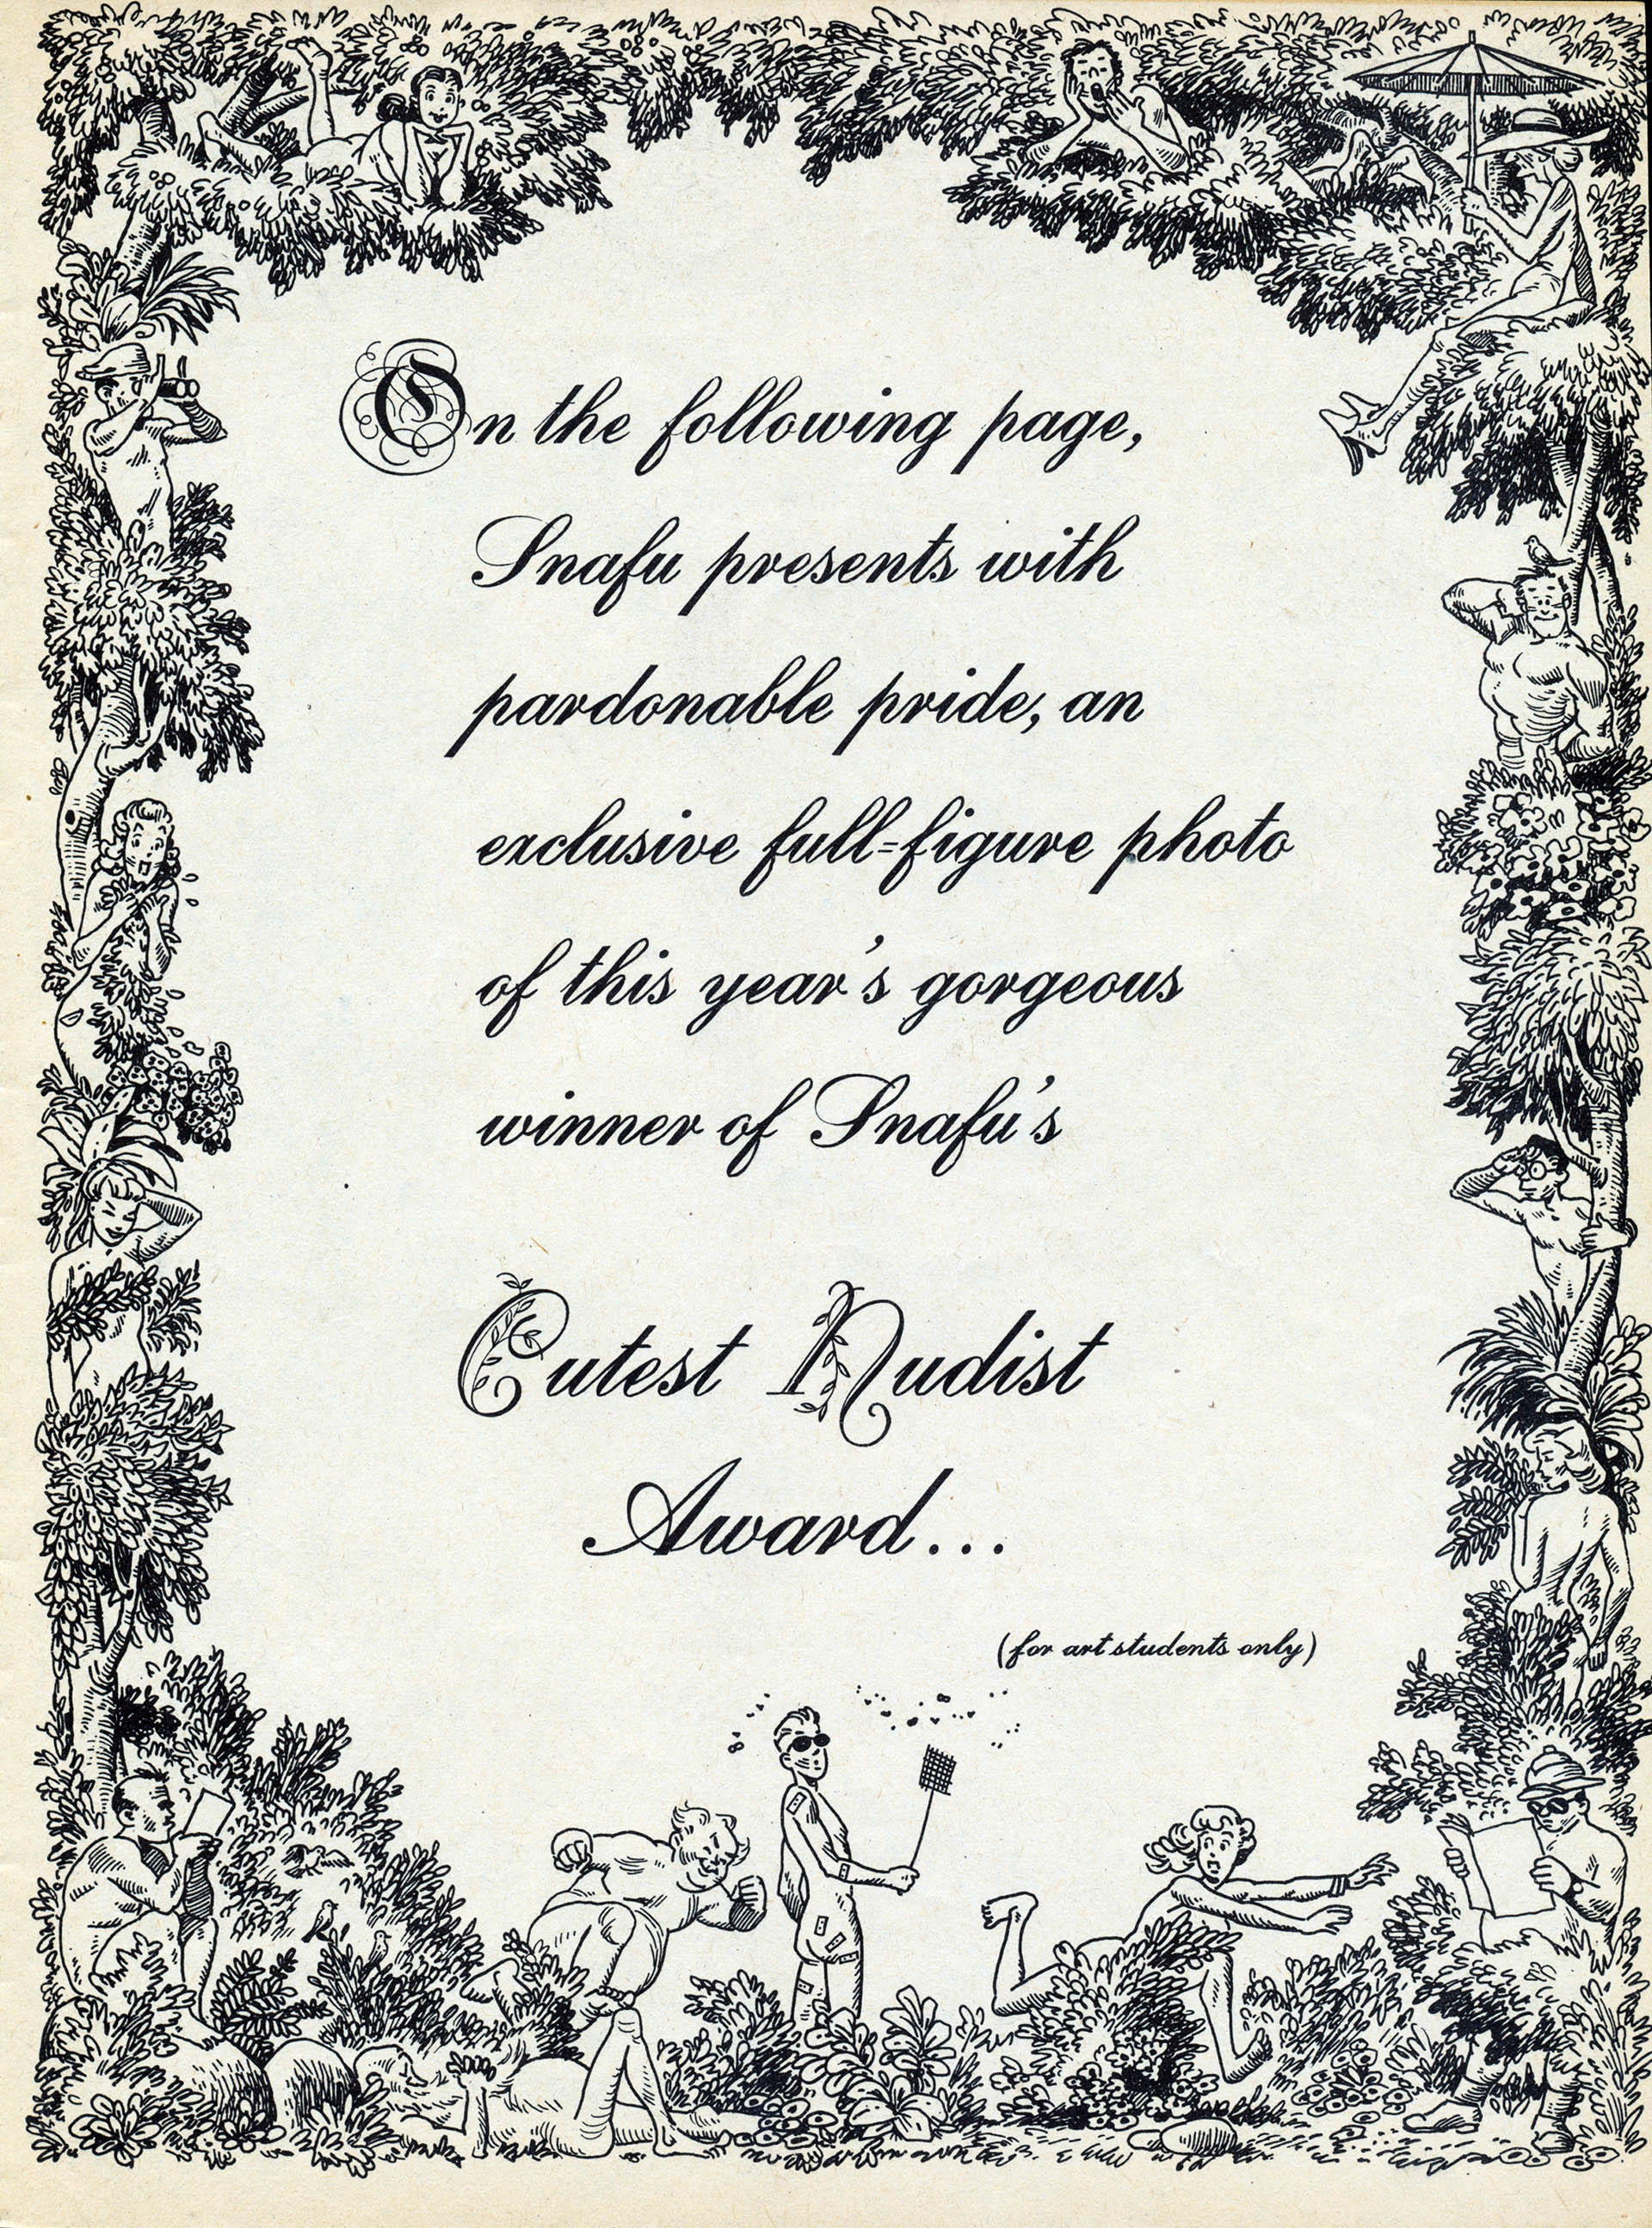 On the following page,
Snafu presents with
pardonable pride, an
exclusive full-figure photo
of this year's gorgeous
winner of Snafu's
Cutest Nudist
Award...
(for art students only)